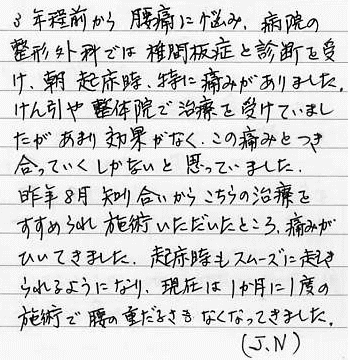 3年程前から腰痛に悩み、病院の
整形外科では椎間板症と診断を受
け、朝起床時、特に痛みがありました。
けん引や整体院で治療を受けていまし
たがあまり効果がなく、この痛みとつき
合っていくしかないと思っていました。
昨年8月知り合いからこちらの治療を
すすめられ施術いただいたところ、痛みが
ひいてきました。起床時もスムーズに起き
られるようになり、現在は1か月に1度の
施術で腰の重だるさもなくなってきました。
(J.N)